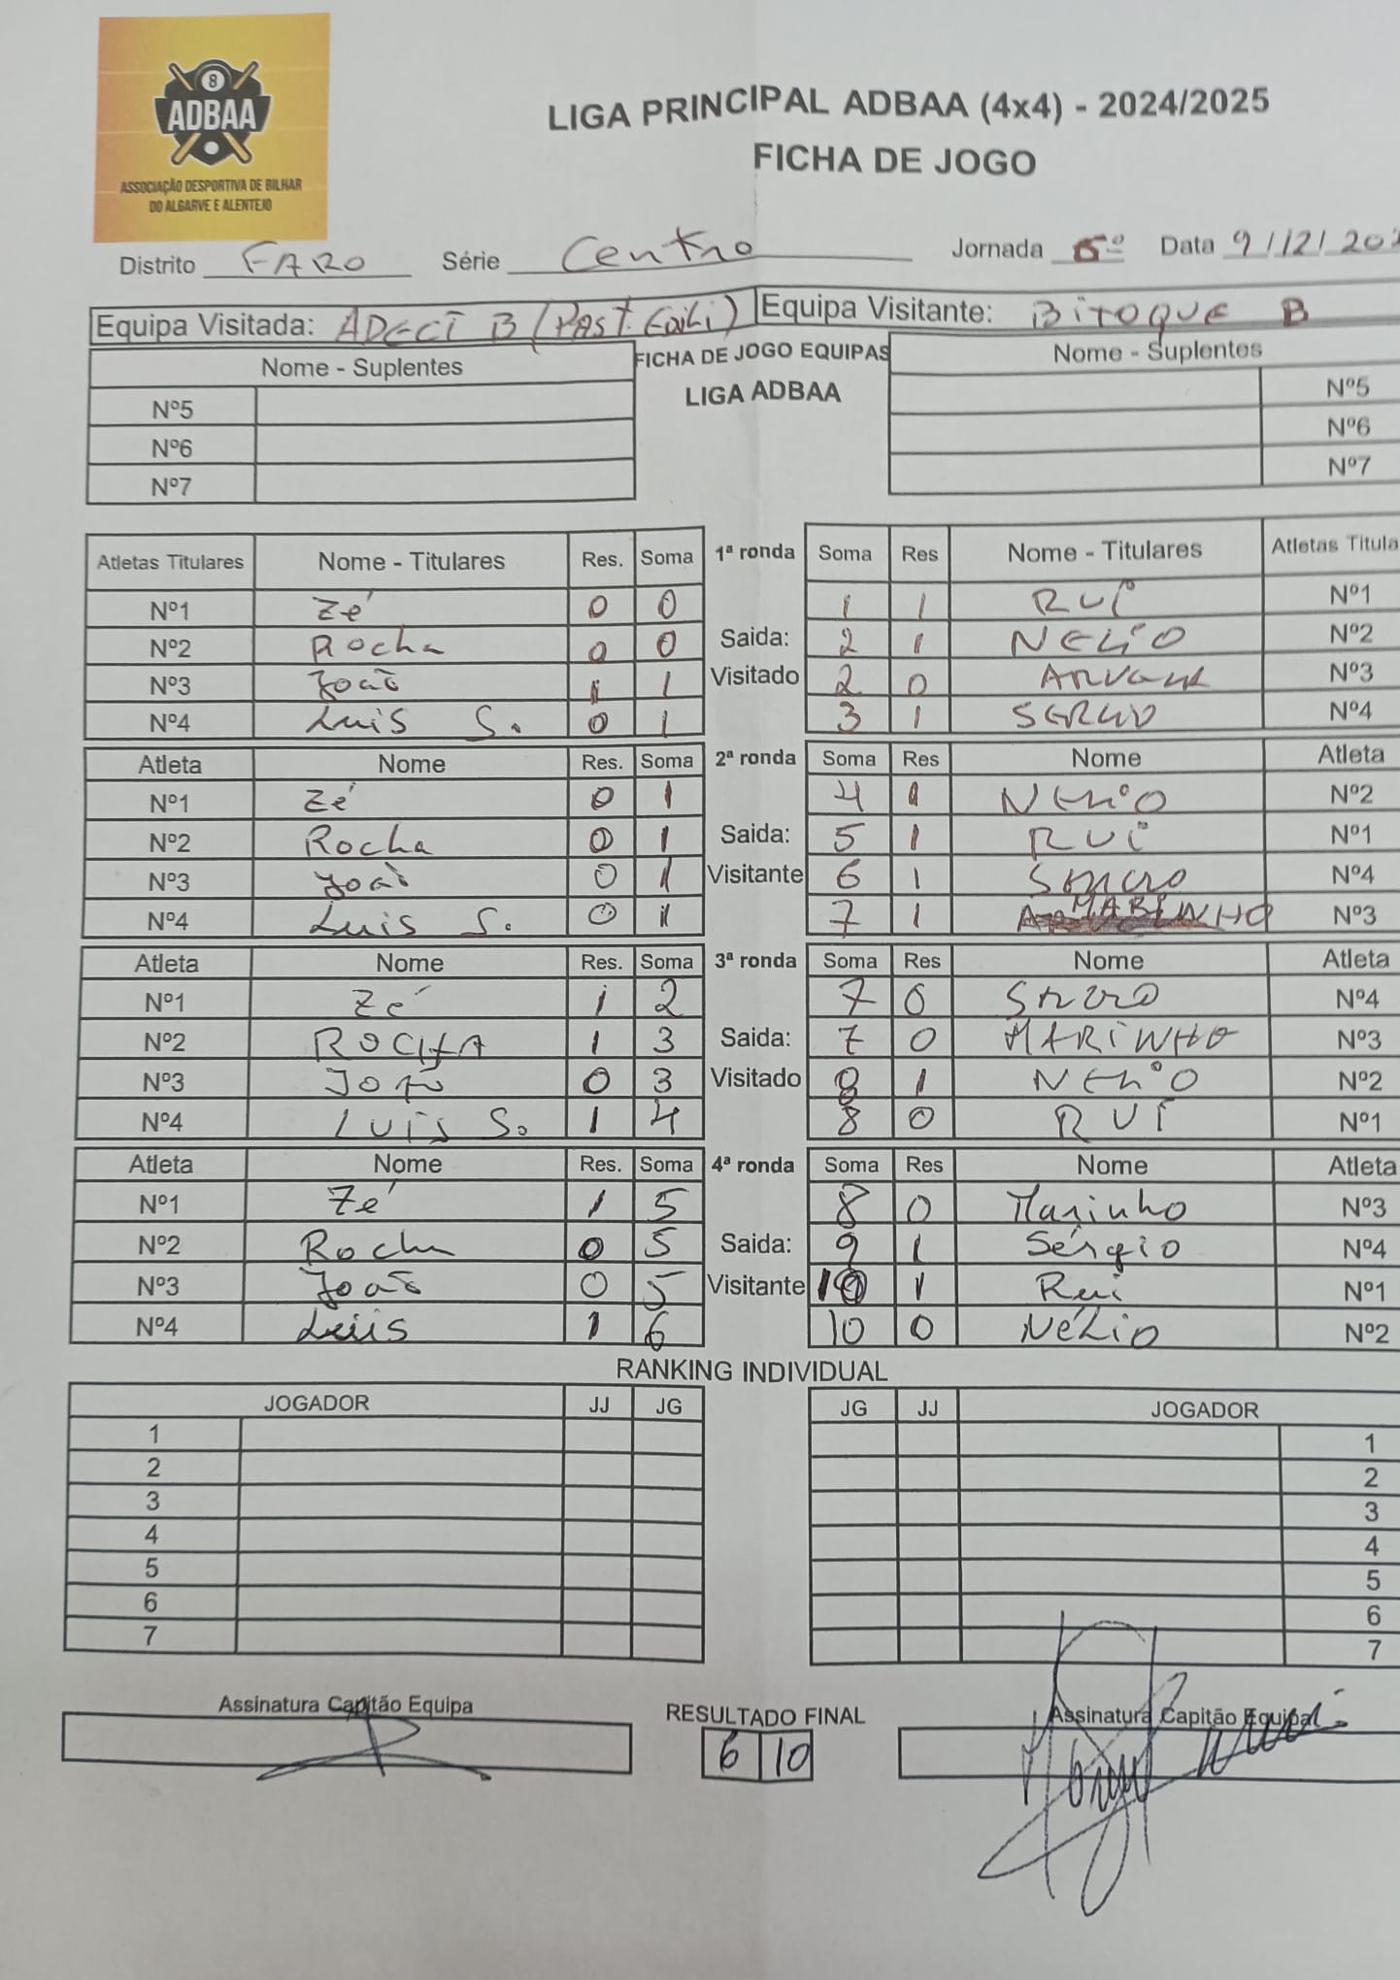 8
ADBAA
ASSOCIAÇÃO DESPORTIVA DE BILHAR
DO ALGARVE E ALENTEJO
LIGA PRINCIPAL ADBAA (4x4) - 2024/2025
FICHA DE JOGO
Distrito FARO Série Centro Jornada 5º Data 9/12/202
Equipa Visitada: ADECI B (Past. Equipa Visitante: BiTOQUE B
Nome - Suplentes FICHA DE JOGO EQUIPAS Nome - Suplentes
LIGA ADBAA
Nº5 Nº5
Nº6 Nº6
Nº7 Nº7
Atletas Titulares Nome - Titulares Res. Soma 1ª ronda Soma Res Nome - Titulares Atletas Titula
Nº1 Zé 0 0 1 1 RUI Nº1
Nº2 Rocha 0 0 Saida: 2 1 NELIO Nº2
Nº3 João 1 1 Visitado 2 0 Nº3
Nº4 Luis S. 0 1 3 1 SERGIO Nº4
Atleta Nome Res. Soma 2ª ronda Soma Res Nome Atleta
Nº1 Zé 0 1 4 1 NELIO Nº2
Nº2 Rocha 0 1 Saida: 5 1 RUI Nº1
Nº3 João 0 1 Visitante 6 1 Nº4
Nº4 Luis S. 0 1 7 1 MARINHO Nº3
Atleta Nome Res. Soma 3ª ronda Soma Res Nome Atleta
Nº1 Zé 1 2 7 0 Nº4
Nº2 ROCHA 1 3 Saida: 7 0 MARINHO Nº3
Nº3 João 0 3 Visitado 8 1 NELIO Nº2
Nº4 LUIS S. 1 4 8 0 RUI Nº1
Atleta Nome Res. Soma 4ª ronda Soma Res Nome Atleta
Nº1 Zé 1 5 8 0 Marinho Nº3
Nº2 Rocha 0 5 Saida: 9 1 Sérgio Nº4
Nº3 João 0 5 Visitante 10 1 Rui Nº1
Nº4 Luis 1 6 10 0 NéLio Nº2
RANKING INDIVIDUAL
JOGADOR JJ JG JG JJ JOGADOR
1 1
2 2
3 3
4 4
5 5
6 6
7 7
Assinatura Capitão Equipa RESULTADO FINAL Assinatura Capitão Equipa
6 10